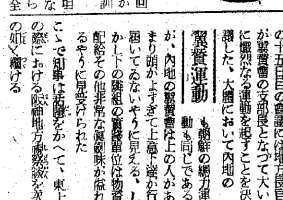 の十五日目の會議には地方長官
が翼賛會の支部長となつて大い
に熾烈なる運動を起すことを決
議した、大體において内地の
翼賛運動
も朝鮮の總力運
動も同じである
が、内地の翼賛會は上の人があ
まり頭がよすぎて上意下達が行
届いてゐないやうに見える、し
かし下の隣組の實踐單位は物資
配給その他非常な眞劍味が溢れ
るやうに見受けられた
こゝで知事は話題をかへて、東上
の際における阪神地方視察談を次
の如く續ける